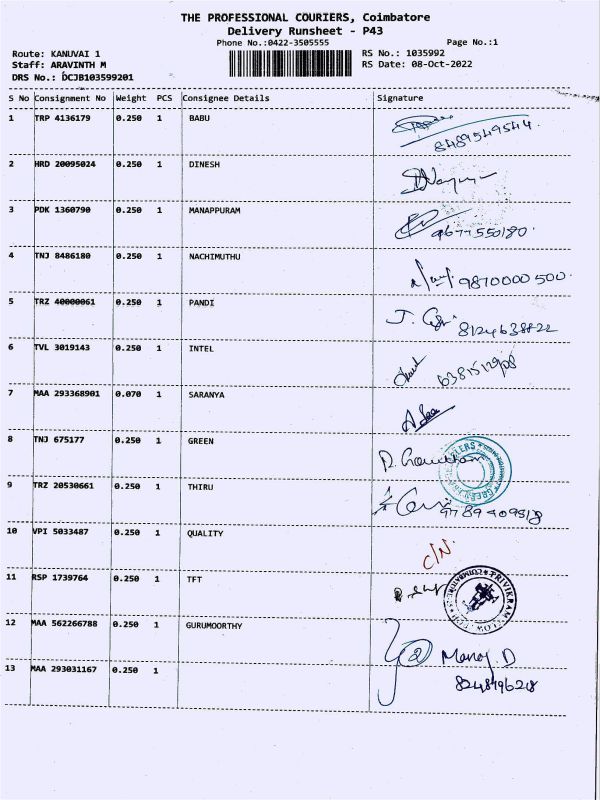 THE PROFESSIONAL COURIERS, Coimbatore
Delivery Runsheet - P43
Phone No.:0422-3505555
Page No.:1
Route: KANUVAI 1
RS No.: 1035992
Staff: ARAVINTH M
RS Date: 08-Oct-2022
DRS No.: DCJB103599201
S No Consignment No Weight PCS Consignee Details Signature
1 TRP 4136179 0.250 1 BABU
8489549544.
2 HRD 20095024 0.250 1 DINESH
3 PDK 1360790 0.250 1 MANAPPURAM
9677550180.
4 TNJ 8486180 0.250 1 NACHIMUTHU
9870000500.
5 TRZ 40000061 0.250 1 PANDI
8124638822
6 TVL 3019143 0.250 1 INTEL
6381512908
7 MAA 293368901 0.070 1 SARANYA
8 TNJ 675177 0.250 1 GREEN
9 TRZ 20530661 0.250 1 THIRU
9789409818
10 VPI 5033487 0.250 1 QUALITY
C/N.
11 RSP 1739764 0.250 1 TFT
12 MAA 562266788 0.250 1 GURUMOORTHY
Manoj. D
13 MAA 293031167 0.250 1